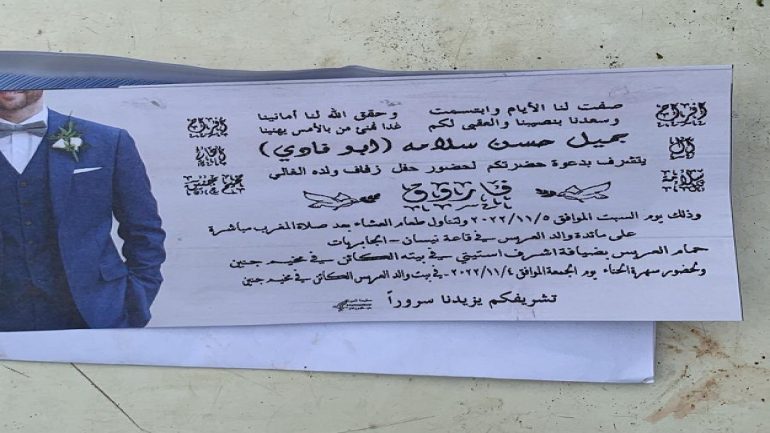 أفراح
آل
سلامه
صفت لنا الأيام وابتسمت وحقق الله لنا أمانينا
وسعدنا بنصيبنا والعقبى لكم غدا فتى من بالأمس يهنينا
جميل حسن سلامه (ابو فادي)
يتشرف بدعوة حضرتكم لحضور حفل زفاف ولده الغالي
فاروق
وذلك يوم السبت الموافق ٢٠٢٢/١١/٥ ولتناول طعام العشاء بعد صلاة المغرب مباشرة
على مائدة والد العريس في قاعة نيسان - الجابريات
حمام العريس بضيافة اشرف استيتي في بيته الكائن في مخيم جنين
ولحضور سهرة الحناء يوم الجمعة الموافق ٢٠٢٢/١١/٤ - في بيت والد العريس الكائن في مخيم جنين
تشريفكم يزيدنا سروراً
أفراح
مخيم جنين